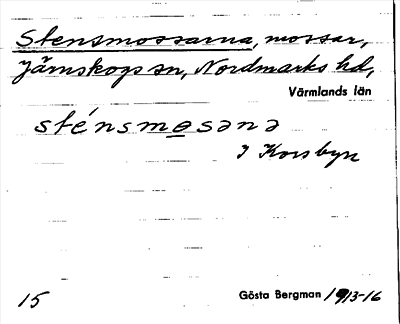 Stensmossarna, mossar,
Järnskogs sn, Nordmarks hd,
Värmlands län
sténsmosənə
I Korsbyn
15 Gösta Bergman 1913-16